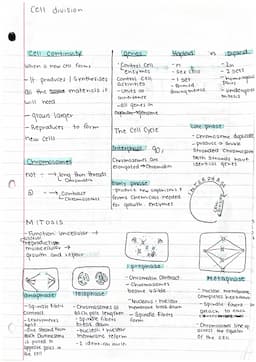 Cell division
Cell Continuity
When a new cell forms
- It produces / synthesizes
all the materials it
will need
- grows larger
- Reproduces to form
new cells
Chromosomes
not → long thin threads
→ Contract
Chromosomes
Genes
- Control Cell
enzymes
Control Cell
activities
- Units of
inheritance
- All genes in
Haploid - n
- Sex cells
- 1 set
Diploid
- 2n
- 2 sets
- homologous
pairs
The Cell Cycle
Interphase 90%
Chromosomes are
elongated → Chromatin
Early phase
- produce new organelles &
forms chemicals needed
for growth enzymes
Late phase
- Chromosome duplicate
- produce a double
stranded Chromosome
both strands have
identical genes
INTERPHASE
MITOSIS
- Function unicellular →
reproduction
multicellular →
growth and repair
Prophase
- Chromatin Contract
- Chromosomes
become visible
- Nucleolus + nuclear
membrane break down
- Spindle fibres
form
Metaphase
- Nuclear membrane
completes breakdown
- Spindle fibres
attach to each
- Chromosomes line up
across the equator
of the cell
Anaphase
- Spindle fibres
Contract
- Centromeres
split
- One strand from
each Chromosome
is pulled to
opposite poles of
the cell
Telophase
- Chromosomes at
each pole lengthen
- Spindle fibres
break down
- nucleoli + nuclear
membranes reform